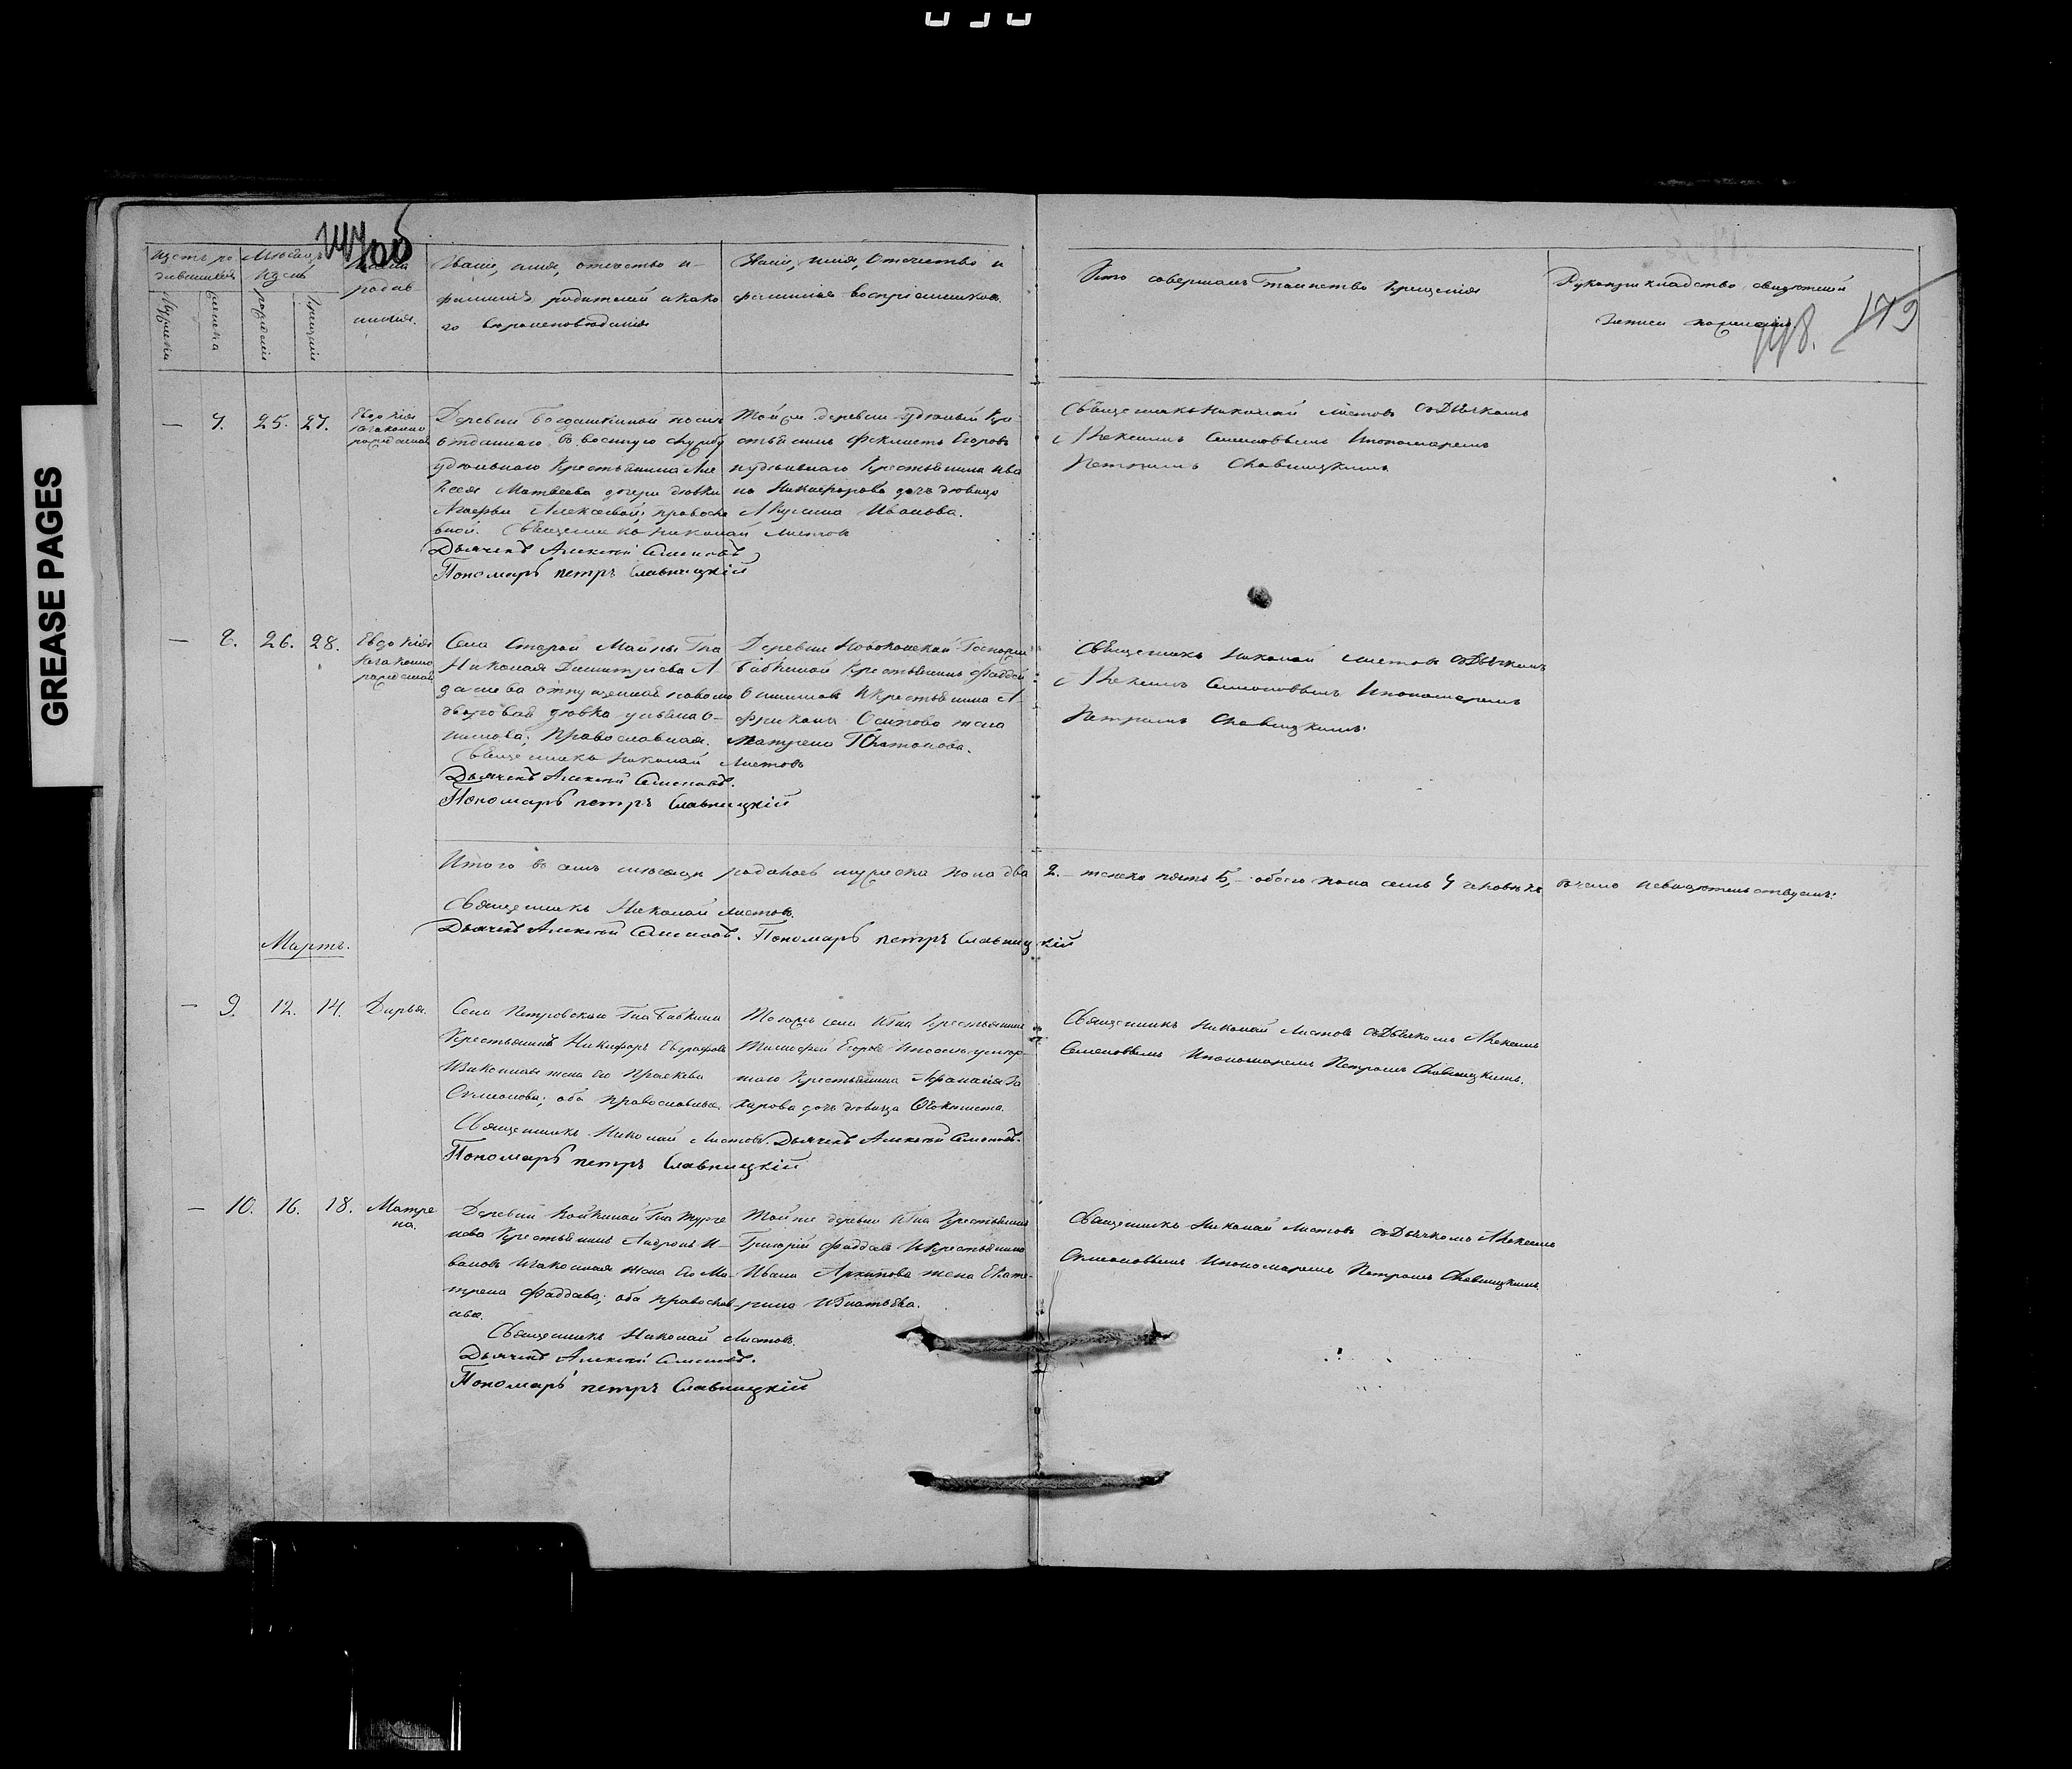 GREASE PAGES
148.
179
Званіе, имя, отчество и
фамилія родителей и како
го вѣроисповѣданія
Званіе, имя, отчество и
фамилія воспріемниковъ.
Кто совершалъ таинство крещенія
Рукоприкладство свидѣтелей
записи по желанію.
— 7. 25. 27. Евдокія
незаконно
рожденная
Деревни Богдашкиной послѣ
отданнаго въ военную службу
удѣльнаго крестьянина Але
ксея Матвѣева дочери дѣвки
Марфы Алексѣевой; православ
ной. Священникъ Николай Листовъ
Дьячекъ Алексѣй Семеновъ
Пономарь петръ Славницкій
Той же деревни удѣльный кре
стьянинъ Феклистъ Егоровъ
и удѣльнаго крестьянина Ива
на Никифорова дочь дѣвица
Акулина Иванова.
Священникъ Николай Листовъ съ Дьячкомъ
Алексѣемъ Семеновымъ и пономаремъ
Петромъ Славницкимъ
— 8. 26. 28. Евдокія
незаконно
рожденная
Села Старой Майны Гна
Николая Димитріева А
отпущенная на волю
дворовая дѣвка Ульяна О-
сипова; православная.
Священникъ Николай Листовъ
Дьячекъ Алексѣй Семеновъ.
Пономарь петръ Славницкій
Деревни
крестьянинъ Фаддей
Осиповъ и крестьянина А-
фрикана Осипова жена
Матрена Платонова.
Священникъ Николай Листовъ съ Дьячкомъ
Алексѣемъ Семеновымъ и пономаремъ
Петромъ Славницкимъ.
Итого въ семъ мѣсяцѣ родилось мужеска пола два 2. – женска пять 5, – обоего пола семь 7 человѣкъ въ чемъ и свидѣтельствуемъ:
Священникъ Николай Листовъ.
Дьячекъ Алексѣй Семеновъ. Пономарь петръ Славницкій
Мартъ.
— 9. 12. 14. Дарья.
Села Петровскаго Гна Бабкина
крестьянинъ Никифоръ Евграфовъ
и законная жена его Прасковья
Семенова; оба православные.
Священникъ Николай Листовъ. Дьячекъ Алексѣй Семеновъ.
Пономарь петръ Славницкій
Тогожъ села и Гна крестьянинъ
Тимофей Егоровъ и послѣ умер-
шаго крестьянина Афанасія За
харова дочь дѣвица Ѳеоктиста.
Священникъ Николай Листовъ съ Дьячкомъ Алексѣемъ
Семеновымъ и пономаремъ Петромъ Славницкимъ.
— 10. 16. 18. Матре
на.
Деревни Койкиной Гна Турге
нева крестьянинъ Андронъ И-
вановъ и законная жена его Ма-
трена Фаддѣева; оба православ-
ные.
Священникъ Николай Листовъ.
Дьячекъ Алексѣй Семеновъ.
Пономарь петръ Славницкій
Той же деревни и Гна крестьянинъ
Григорій Фаддѣевъ и крестьянина
Ивана Архипова жена Екате-
рина Игнатьева.
Священникъ Николай Листовъ съ Дьячкомъ Алексѣемъ
Семеновымъ и пономаремъ Петромъ Славницкимъ.